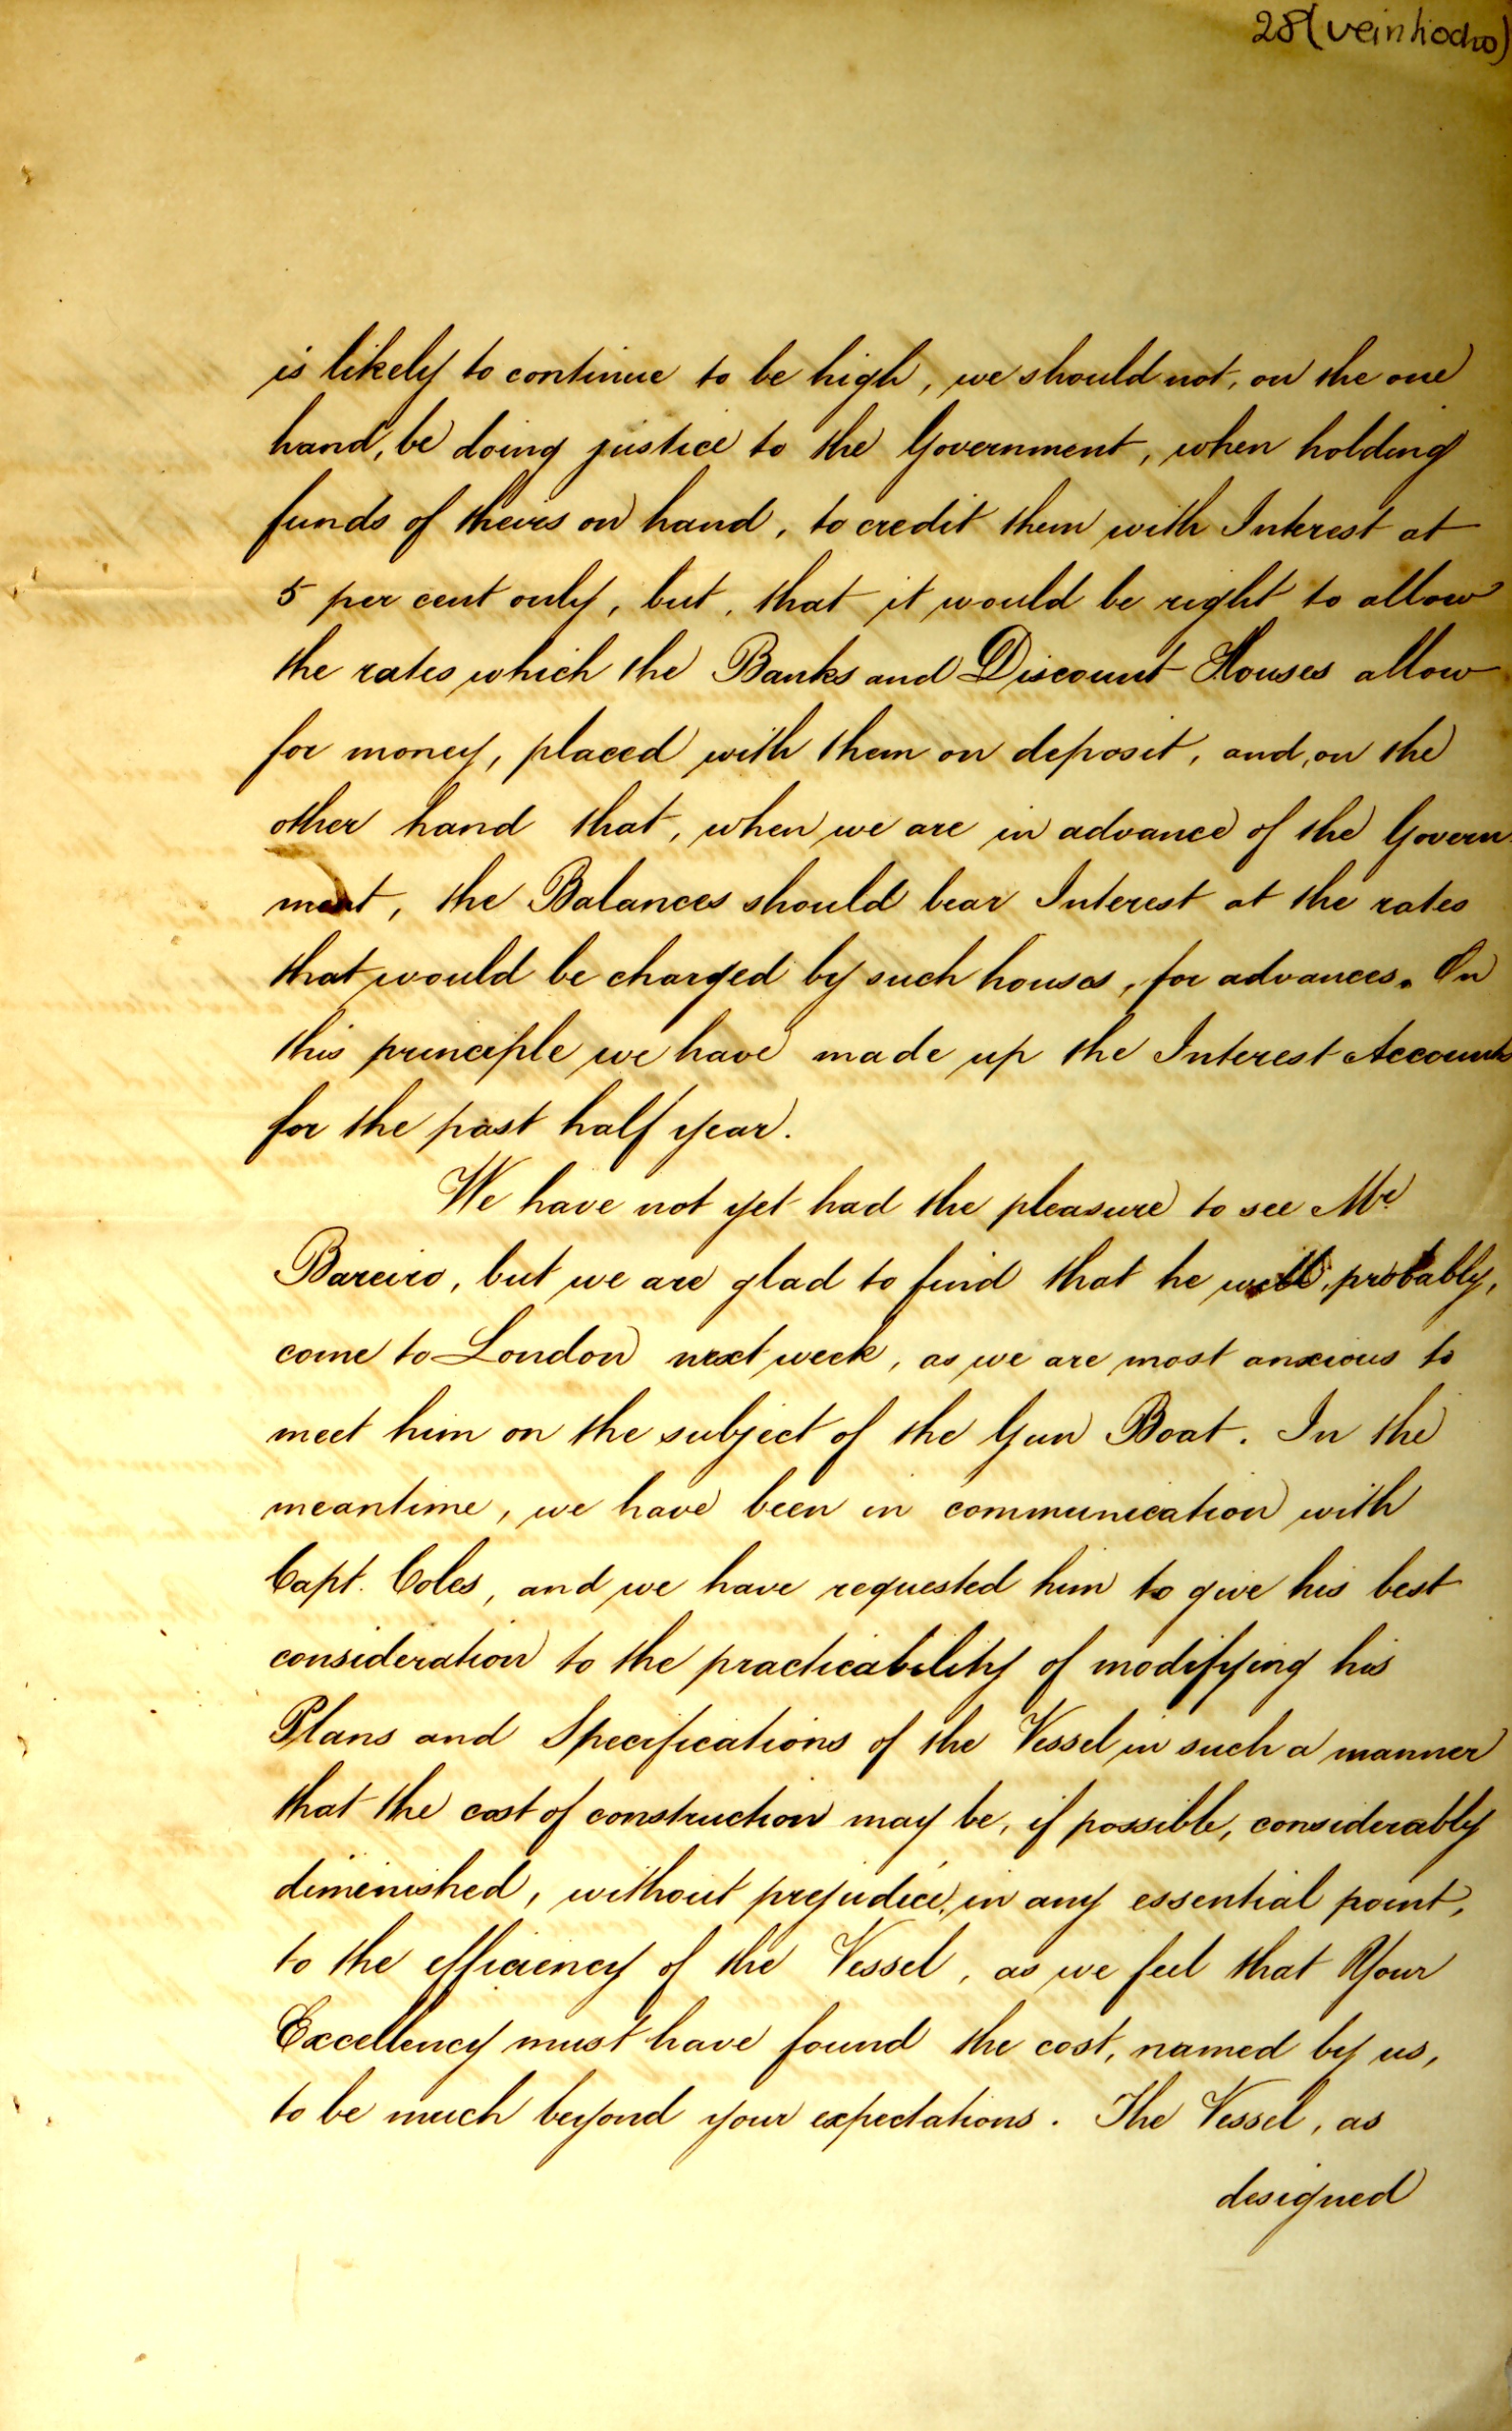 28 (veintiocho)
is likely to continue to be high, we should not, on the one
hand, be doing justice to the Government, when holding
funds of theirs on hand, to credit them with Interest at
5 per cent only, but, that it would be right to allow
the rates which the Banks and Discount Houses allow
for money, placed with them on deposit, and, on the
other hand that, when we are in advance of the Govern-
ment, the Balances should bear Interest at the rates
that would be charged by such houses, for advances. On
this principle we have made up the Interest Accounts
for the past half year.
We have not yet had the pleasure to see Mr.
Bareiro, but we are glad to find that he will, probably,
come to London next week, as we are most anxious to
meet him on the subject of the Gun Boat. In the
meantime, we have been in communication with
Capt. Coles, and we have requested him to give his best
consideration to the practicability of modifying his
Plans and Specifications of the Vessel in such a manner
that the cost of construction may be, if possible, considerably
diminished, without prejudice, in any essential point,
to the efficiency of the Vessel, as we feel that Your
Excellency must have found the cost, named by us,
to be much beyond your expectations. The Vessel, as
designed